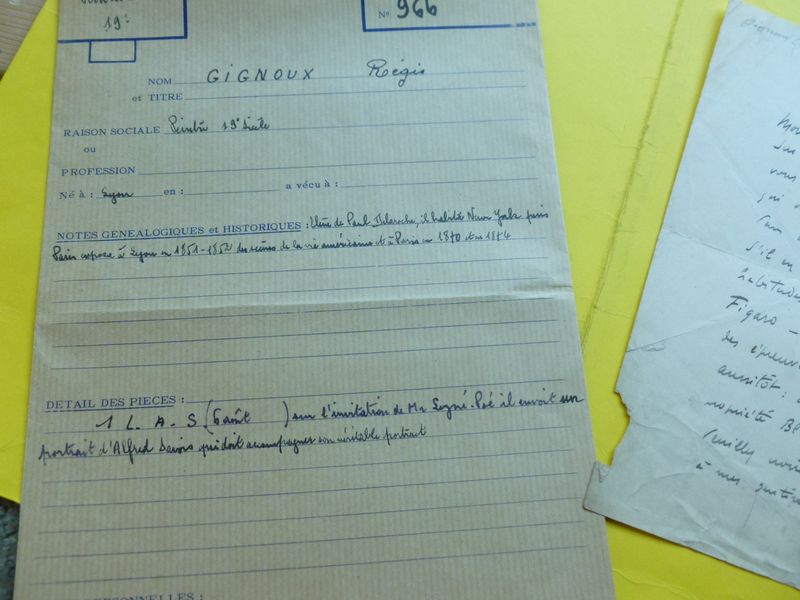 19e
No 966
NOM GIGNOUX Régis
et TITRE
RAISON SOCIALE Peintre 19e siècle
ou
PROFESSION
Né à : Lyon en : a vécu à :
NOTES GENEALOGIQUES et HISTORIQUES : Elève de Paul Delaroche, il habita New York puis
Paris exposa à Lyon en 1851-1852 des scènes de la vie américaine et à Paris en 1870 et en 1874
DETAIL DES PIECES :
1 L. A. S (6 août ) sur l'invitation de Mr il envoit un
portrait d'Alfred qui doit accompagner son véritable portrait
PERSONNELLES :
vous
qui
s'il en
habitude
Figaro -
des épreuves
aussitôt :